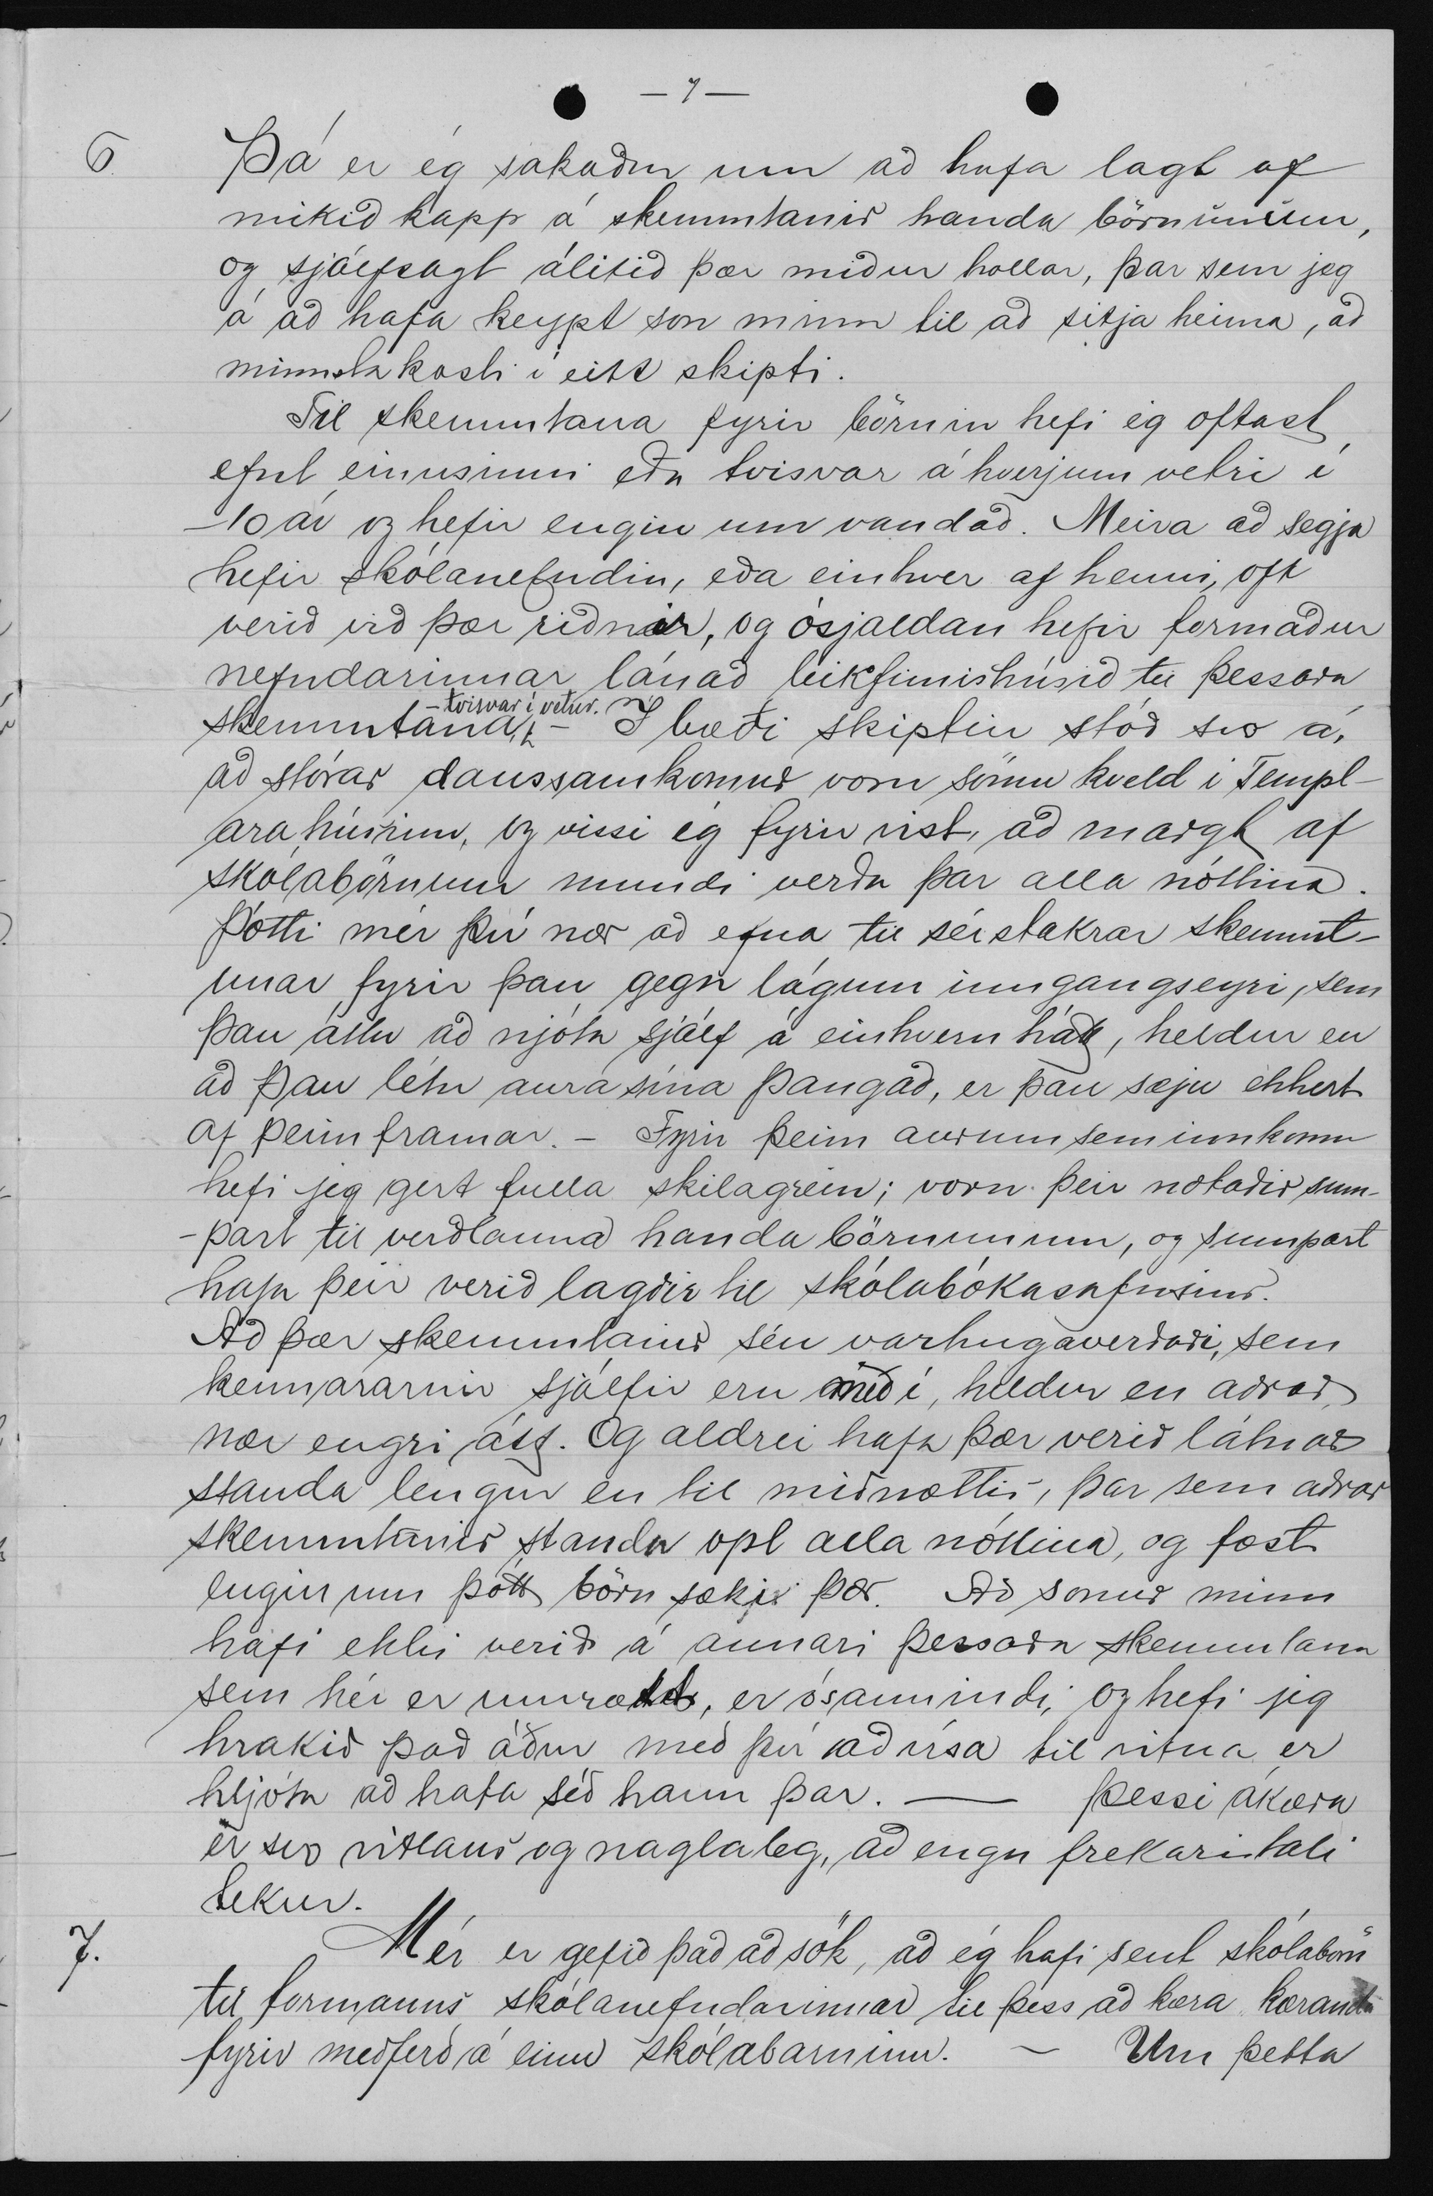 — 7 —
6. Þá er ég sakaður um að hafa lagt of
mikið kapp á skemmtanir handa börnunum,
og sjálfsagt álitið þær miður hollar, þar sem jeg
á að hafa keypt son minn til að sitja heima, að
minnsta kosti í eitt skipti.
Til skemmtana fyrir börnin hefi ég oftast
efnt einusinni eða tvisvar á hverjum vetri í
10 ár og hefir engin um vandað. Meira að segja
hefir skólanefndin, eða einhver af henni, oft
verið við þær riðnir, og ósjaldan hefir formaður
nefndarinnar lánað leikfimishúsið til þessara
skemmtana, - tvisvar í vetur. - Í bæði skiptin stóð svo á,
að stórar danssamkomur voru sömu kveld í Templ-
arahúsinu, og vissi ég fyrir víst, að margt af
skólabörnum mundi verða þar alla nóttina.
Þótti mér því nær að efna til sérstakrar skemmt-
unar fyrir þau gegn lágum inngangseyri, sem
þau áttu að njóta sjálf á einhvern hátt, heldur en
að þau létu aura sína þangað, er þau sæju ekkert
af þeim framar. - Fyrir þeim aurum sem inn komu
hefi jeg gert fulla skilagrein; voru þeir notaðir sum-
-part til verðlauna handa börnunum, og sumpart
hafa þeir verið lagðir til skólabókasafnsins.
Að þær skemmtanir séu varhugaverðari, sem
kennararnir sjálfir eru með í, heldur en aðrar,
nær engri átt. Og aldrei hafa þær verið látnar
standa lengur en til miðnættis, þar sem aðrar
skemmtanir standa opt alla nóttina, og fæst
engin um þótt börn sæki þær. Að sonur minn
hafi ekki verið á annari þessara skemmtana
sem hér er umrædd, er ósannindi, og hefi jeg
hrakið það áður með því að vísa til vitna er
hljóta að hafa séð hann þar. — Þessi ákæra
er svo vitlaus og naglaleg, að engu frekari tali
tekur.
7. Mér er gefið það að sök, að ég hafi sent skólabörn
til formanns skólanefndarinnar til þess að kæra kæranda
fyrir meðferð á einu skólabarninu. — Um þetta